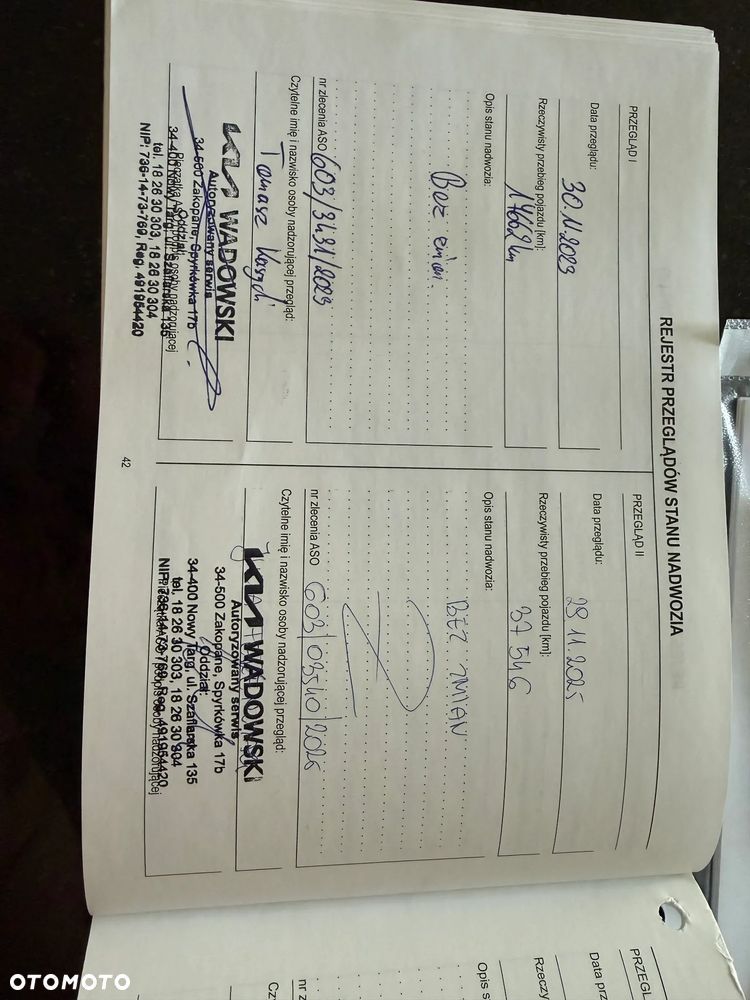 REJESTR PRZEGLĄDÓW STANU NADWOZIA
PRZEGLĄD I
Data przeglądu:
30.11.2023
Rzeczywisty przebieg pojazdu [km]:
17662 km
Opis stanu nadwozia:
Bez zmian.
nr zlecenia ASO 603/3431/2023
Czytelne imię i nazwisko osoby nadzorującej przegląd:
Tomasz
KIA WADOWSKI
Autoryzowany serwis
34-500 Zakopane, Spyrkówka 17b
Oddział:
34-400 Nowy Targ, ul. Szaflarska 135
tel. 18 26 30 303, 18 26 30 304
NIP: 736-14-73-769, Reg. 491954420
PRZEGLĄD II
Data przeglądu:
29.11.2025
Rzeczywisty przebieg pojazdu [km]:
37546
Opis stanu nadwozia:
BEZ ZMIAN
nr zlecenia ASO 603/03540/2025
Czytelne imię i nazwisko osoby nadzorującej przegląd:
KIA WADOWSKI
Autoryzowany serwis
34-500 Zakopane, Spyrkówka 17b
Oddział:
34-400 Nowy Targ, ul. Szaflarska 135
tel. 18 26 30 303, 18 26 30 304
NIP: 736-14-73-769, Reg. 491954420
42
PRZEGL
Data prz
Rzeczy
Opis s
nr z
Cz
OTOMOTO